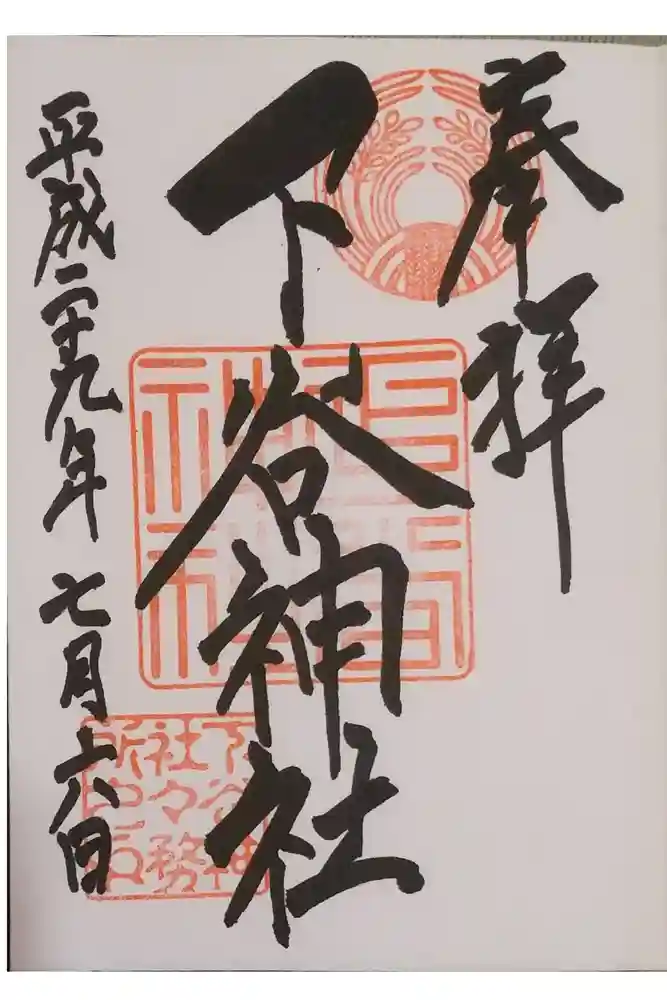 奉拝
下谷神社
平成二十九年七月六日
下谷神
社々務
所之印